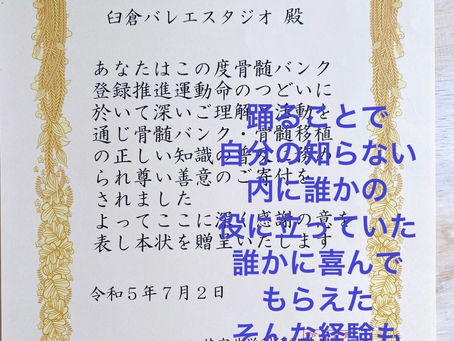 臼倉バレエスタジオ 殿
あなたはこの度骨髄バンク
登録推進運動命のつどいに
於いて深いご理解
活動を
通じ骨髄バンク・骨髄移植
の正しい知識の
られ尊い善意のご寄付を
されました
よってここに深く感謝の意を
表し本状を贈呈いたします
令和5年7月2日
踊ることで
自分の知らない
内に誰かの
役に立っていた
誰かに喜んで
もらえた
そんな経験も